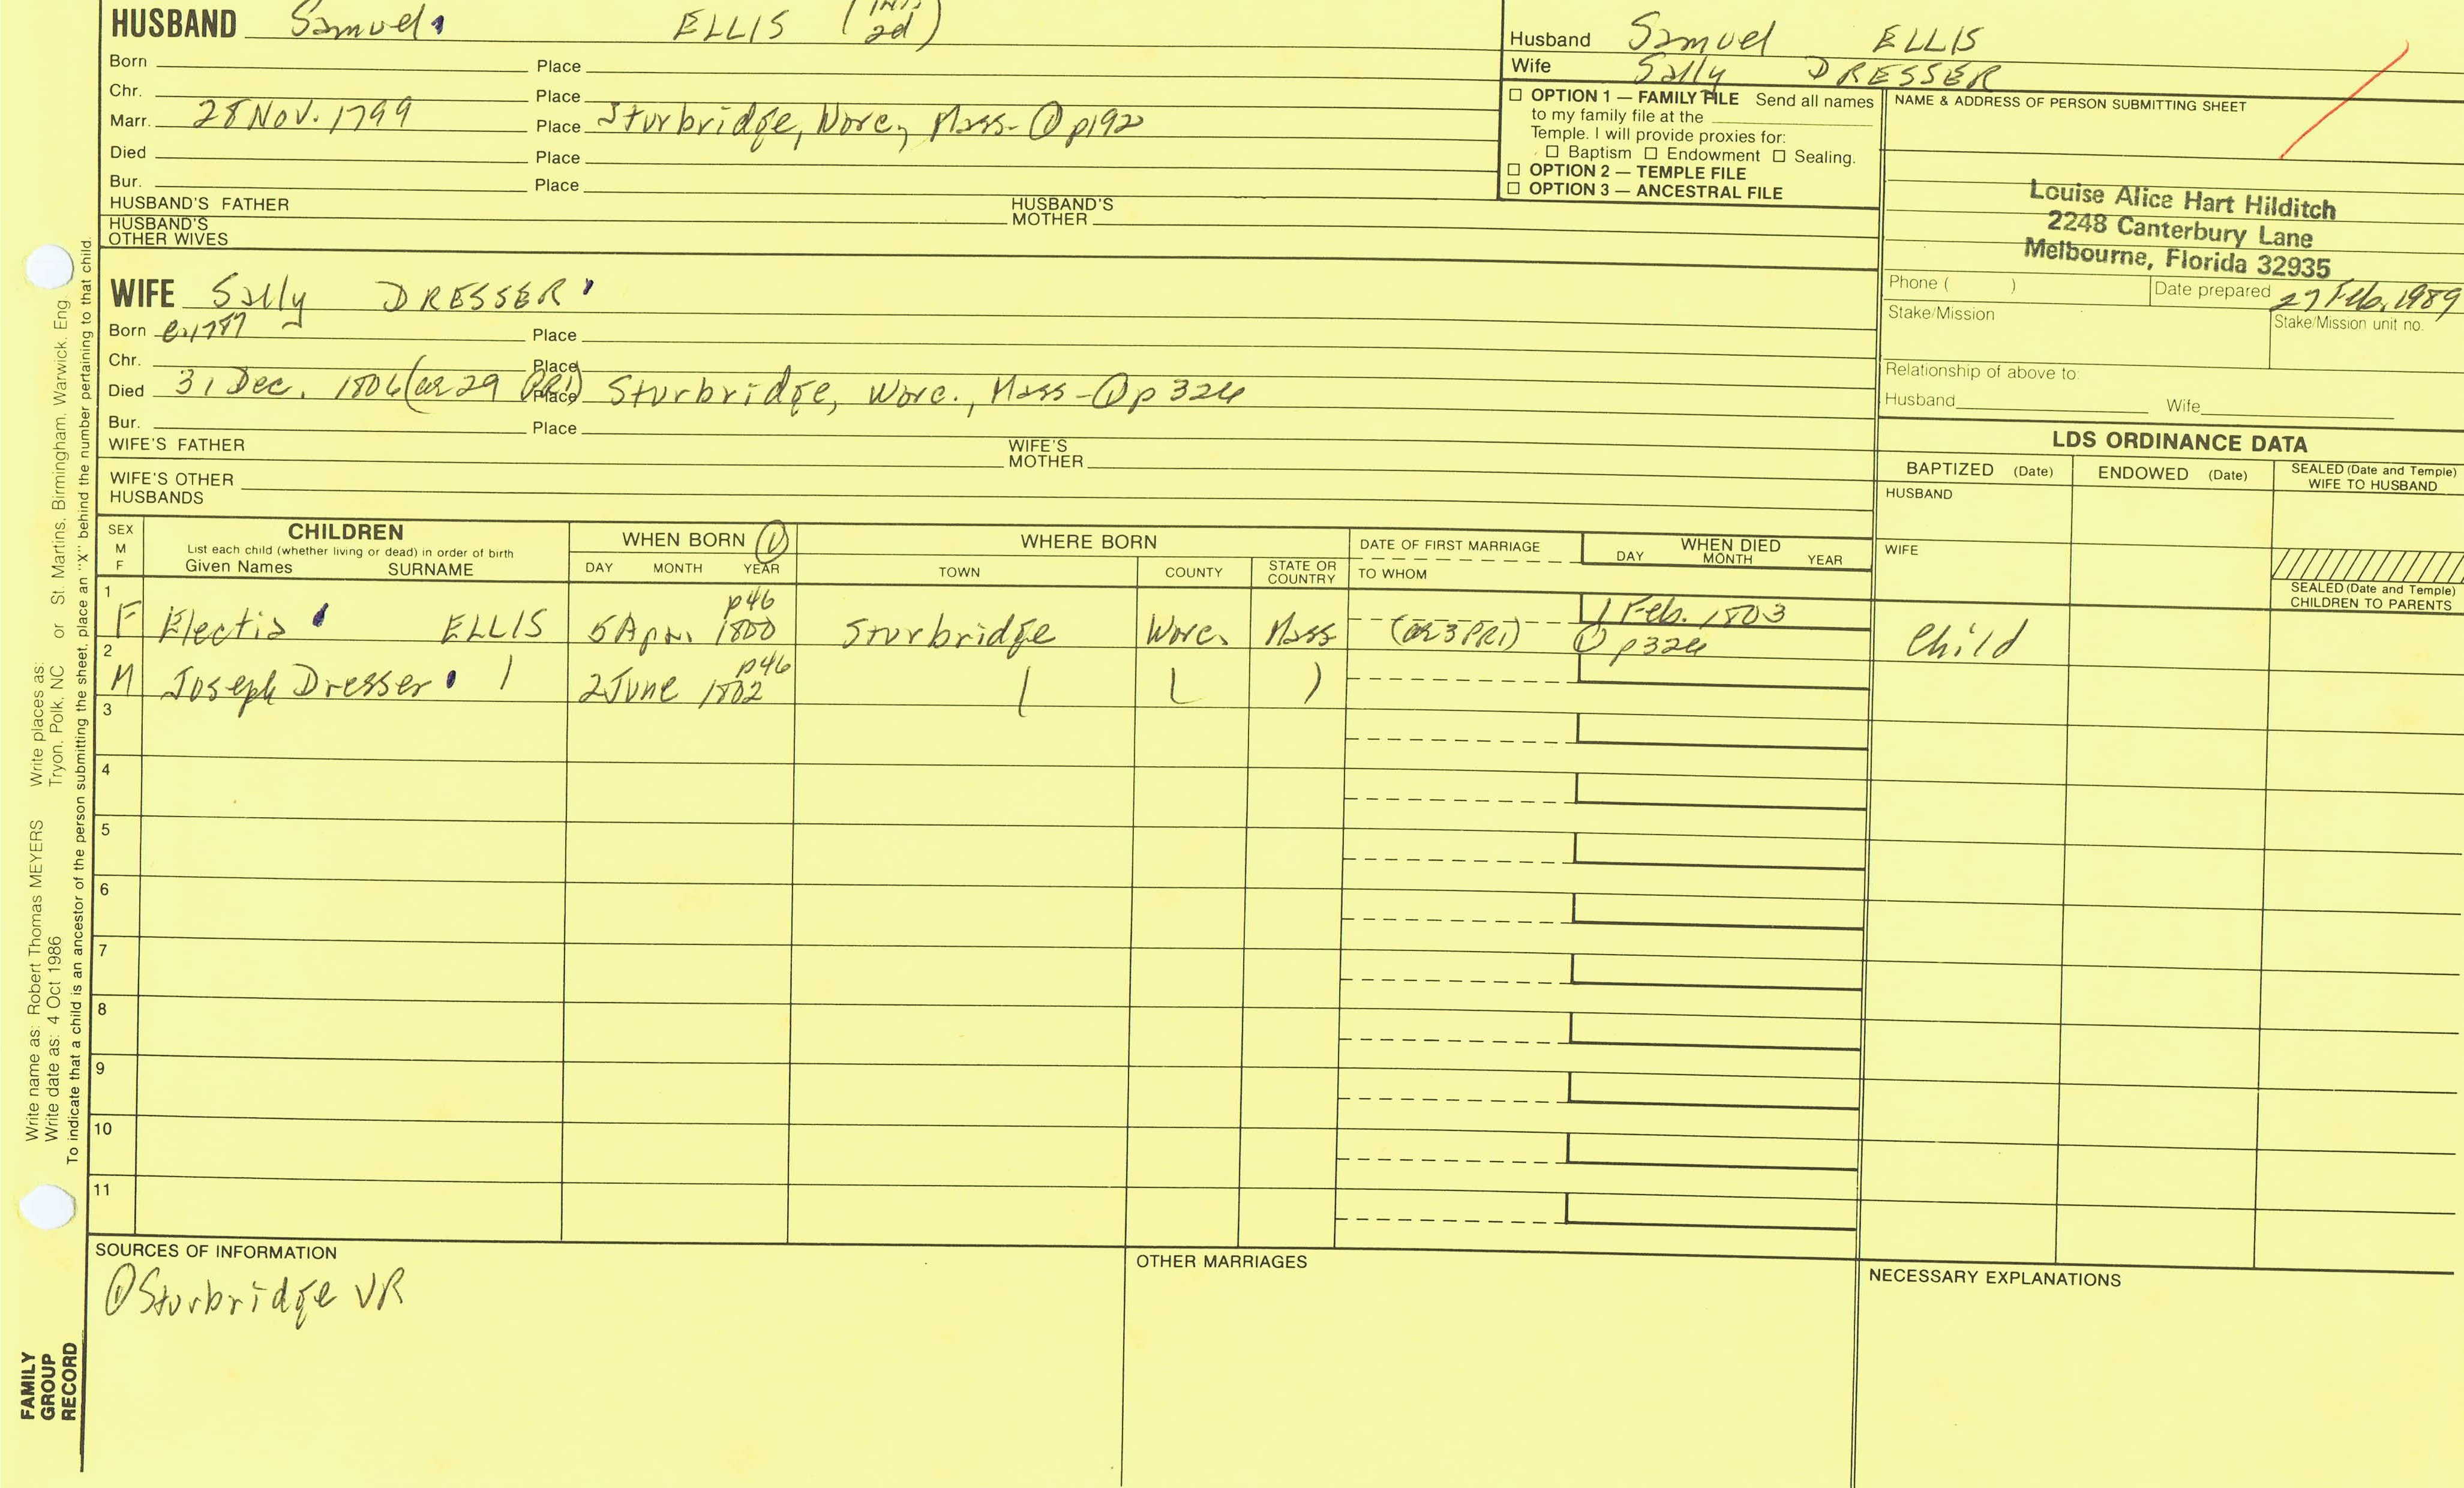 HUSBAND Samuel ELLIS (Int. 2d)
Born Place
Chr. Place
Marr. 28 Nov. 1799 Place Sturbridge, Worc., Mass - ① p192
Died Place
Bur. Place
HUSBAND'S FATHER HUSBAND'S MOTHER
HUSBAND'S OTHER WIVES
WIFE Sally DRESSER
Born Place
Chr. Place
Died 31 Dec. 1806 (ae 29 PR1) Place Sturbridge, Worc., Mass - ① p 324
Bur. Place
WIFE'S FATHER WIFE'S MOTHER
WIFE'S OTHER HUSBANDS
Husband Samuel ELLIS
Wife Sally DRESSER
☐ OPTION 1 — FAMILY FILE Send all names
to my family file at the
Temple. I will provide proxies for:
☐ Baptism ☐ Endowment ☐ Sealing.
☐ OPTION 2 — TEMPLE FILE
☐ OPTION 3 — ANCESTRAL FILE
NAME & ADDRESS OF PERSON SUBMITTING SHEET
Louise Alice Hart Hilditch
2248 Canterbury Lane
Melbourne, Florida 32935
Phone ( ) Date prepared 27 Feb. 1989
Stake/Mission Stake/Mission unit no.
Relationship of above to:
Husband Wife
LDS ORDINANCE DATA
BAPTIZED (Date) ENDOWED (Date) SEALED (Date and Temple) WIFE TO HUSBAND
HUSBAND
WIFE
SEALED (Date and Temple) CHILDREN TO PARENTS
SEX M F
CHILDREN
List each child (whether living or dead) in order of birth
Given Names SURNAME
WHEN BORN ①
DAY MONTH YEAR
WHERE BORN
TOWN COUNTY STATE OR COUNTRY
DATE OF FIRST MARRIAGE
TO WHOM
WHEN DIED
DAY MONTH YEAR
1 F Electia ELLIS 5 Apr. 1800 p46 Sturbridge Worc. Mass (ae 3 PR1) 1 Feb. 1803 ① p324 Child
2 M Joseph Dresser 2 June 1802 p46
3
4
5
6
7
8
9
10
11
SOURCES OF INFORMATION
① Sturbridge VR
OTHER MARRIAGES
NECESSARY EXPLANATIONS
Write name as: Robert Thomas MEYERS Write places as:
Write date as: 4 Oct 1986 Tryon, Polk, NC or St. Martins, Birmingham, Warwick, Eng
To indicate that a child is an ancestor of the person submitting the sheet, place an "X" behind the number pertaining to that child.
FAMILY
GROUP
RECORD